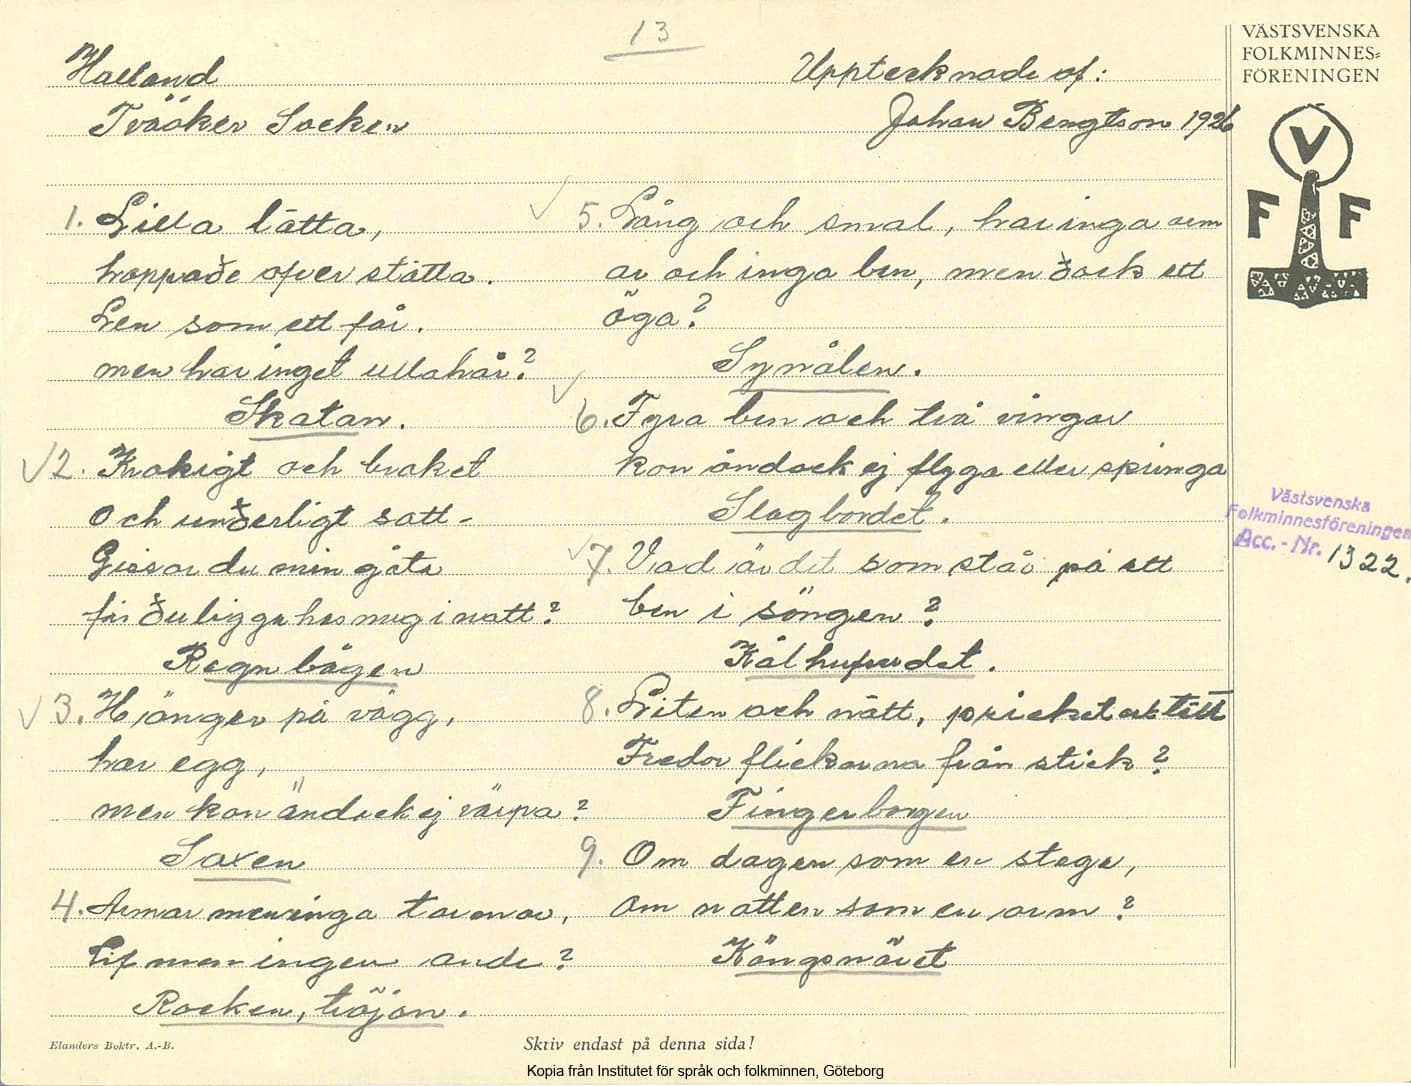 13
Halland
Tvååker Socken
Upptecknade af:
Johan Bengtson 1926
1. Lilla lätta,
hoppade öfver stätta.
Len som ett får.
men har inget ullahår?
Skatan.
2. Krokigt och braket
Och underligt satt -
Gissar du min gåta
får du ligga hos mig i natt?
Regnbågen
3. Hänger på vägg,
har egg,
men kan ändock ej värpa?
Saxen
4. Armar men inga tarmar,
Lif men ingen ande?
Rocken, tröjan.
5. Lång och smal, har inga arm
ar och inga ben, men dock ett
öga?
Synålen.
6. Fyra ben och två vingar
kan ändock ej flyga eller springa
Slagbordet.
7. Vad är det som står på ett
ben i sängen?
Kålhufvudet.
8. Liten och nätt, prickat tätt
Fredar flickorna från stick?
Fingerborgen
9. Om dagen som en stage,
om natten som en arm?
Kängsnöret
VÄSTSVENSKA
FOLKMINNES=
FÖRENINGEN
V
F F
Västsvenska
Folkminnesföreningen
Acc.-Nr. 1322.
Elanders Boktr. A.-B.
Skriv endast på denna sida!
Kopia från Institutet för språk och folkminnen, Göteborg